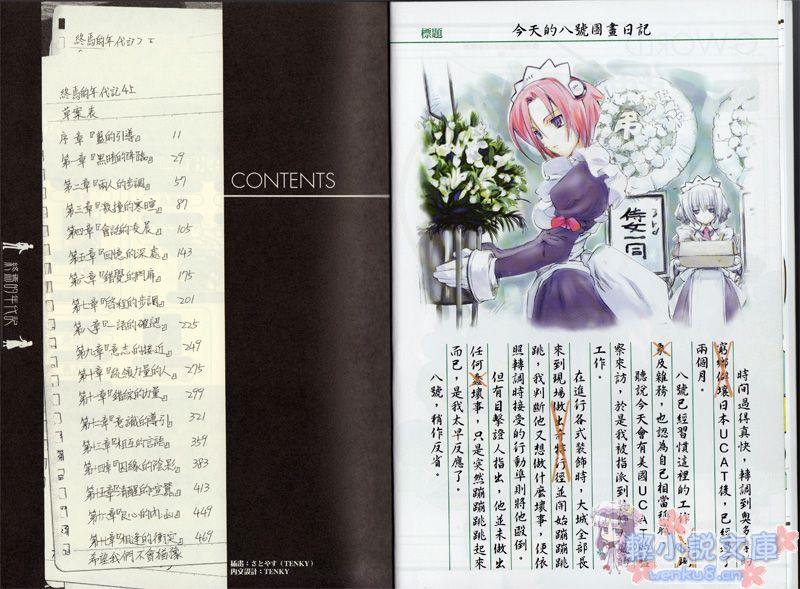 終焉的年代記
終焉的年代記4上
草案表
序 章『藍的引導』 11
第一章『黑暗的降臨』 29
第二章『兩人的步調』 57
第三章『 的寒暄』 87
第四章『會話的發展』 105
第五章『回憶的深處』 143
第六章『錯覺的門扉』 175
第七章『啓程的步調』 201
第八章『一語的確認』 225
第九章『意志的接近』 249
第十章『統領力量的人』 275
第十一章『錯綜的力量』 299
第十二章『意識的導引』 321
第十三章『相互的言語』 359
第十四章『因緣的陰影』 383
第十五章『清醒的喧囂』 413
第十六章『良心的內心』 449
第十七章『相逢的衝突』 469
希望我們不會錯綜
終焉的年代記
CONTENTS
插畫：さとやす（TENKY）
內文設計：TENKY
標題 今天的八號圖畫日記
弔
侍女一同
時間過得真快，轉調到奧多摩的
窮鄉僻壤日本UCAT後，已經
兩個月。
八號已經習慣這裡的工作
及雜務，也認為自己相當稱
聽說今天會有美國UCAT
察來訪，於是我被指派到
工作。
在進行各式裝飾時，大城全部長
來到現場做出奇特行徑並開始蹦蹦跳
跳，我判斷他又想做什麼壞事，便依
照轉調時接受的行動準則將他毆倒。
但有目擊證人指出，他並未做出
任何 壞事，只是突然蹦蹦跳跳起來
而已，是我太早反應了。
八號，稍作反省。
輕小説文庫
wenku8.cn